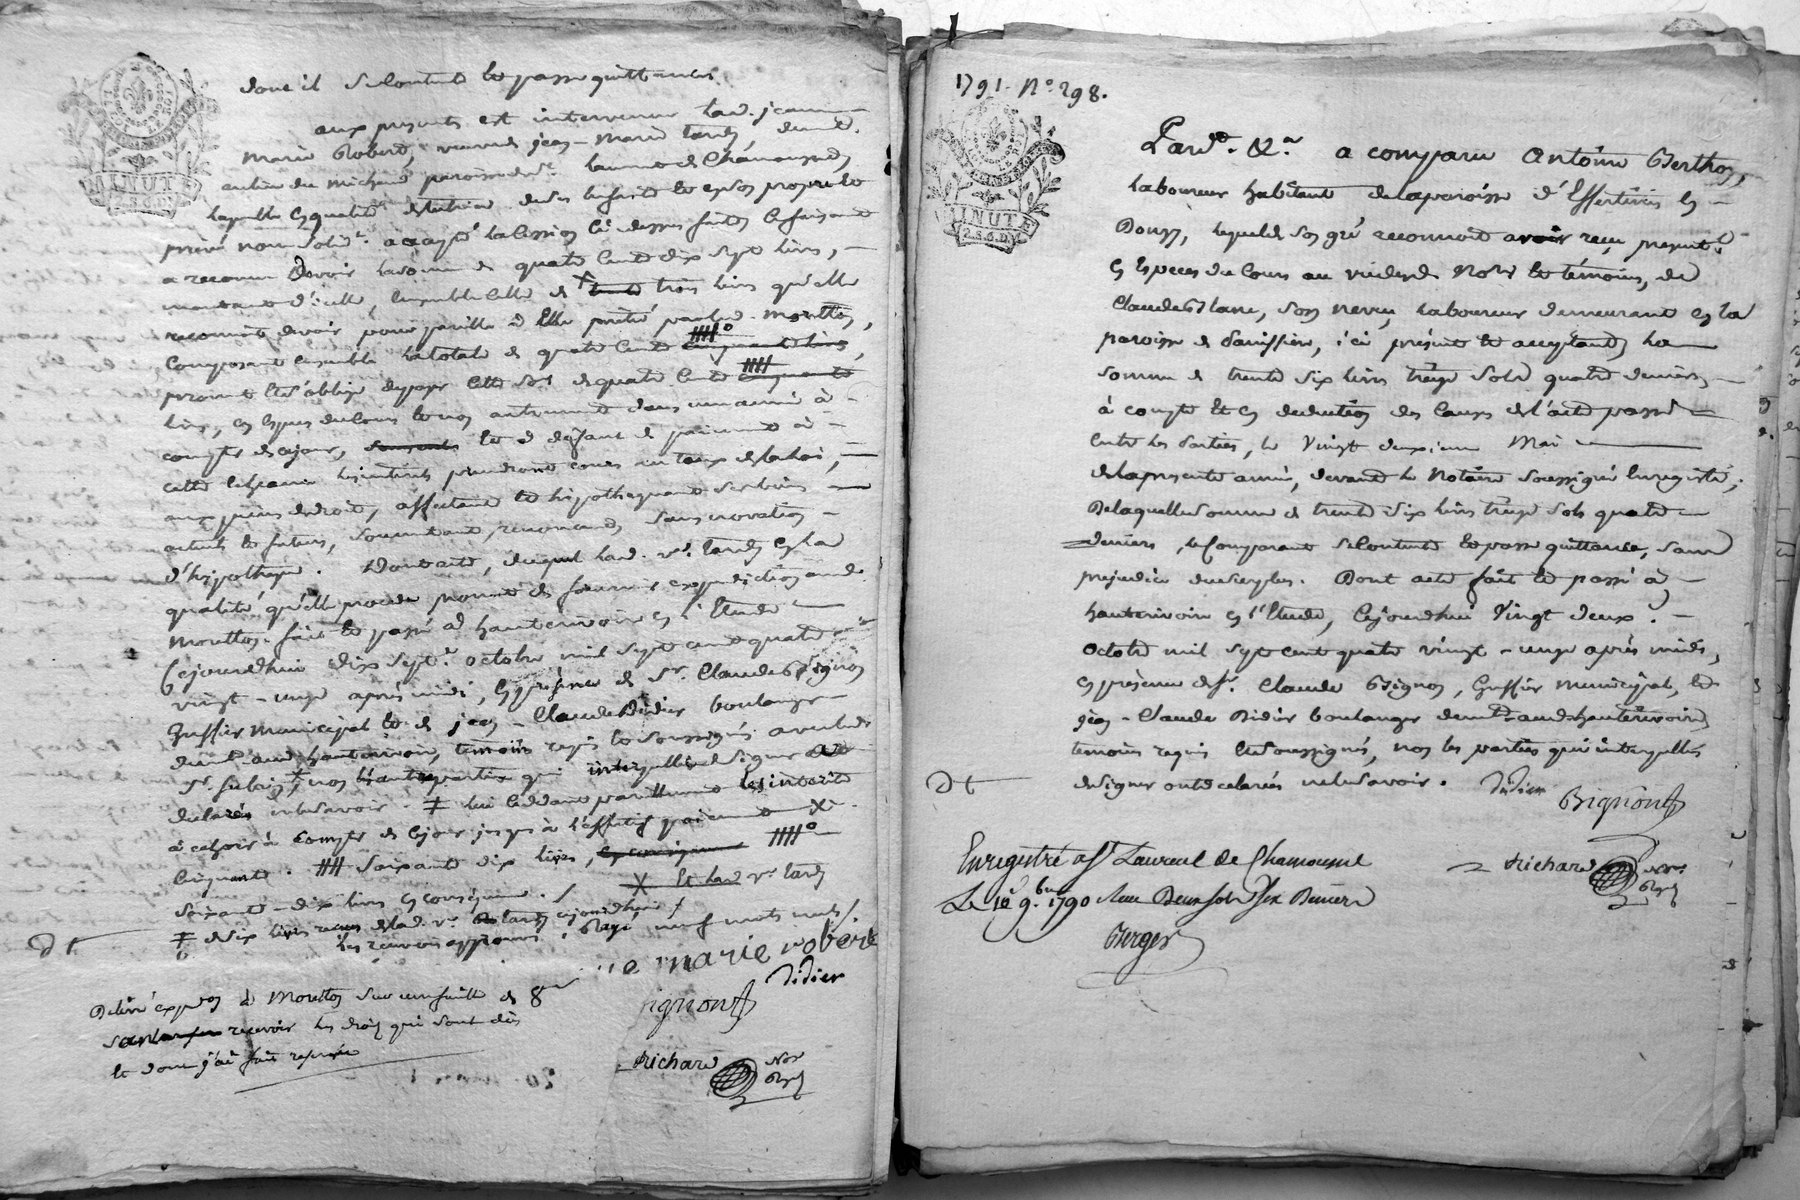 dont il se contente et passe quittance.
aux presentes est intervenue lad. jeanne
Marie Robert, veuve de jean-Marie tardy demt.
au lieu du michaud paroisse de st. laurent de Chamousset,
laquelle en qualité de tutrice de ses enfants et en son propre et
privé nom solid.t a accepté la cession ci dessus faite, ce faisant
a reconnu devoir la somme de quatre cent dix sept livres,
montant d'icelle, ensemble celle de trois livres qu'elle
reconnoit devoir pour pareille à Elle prêtée par led. Moretton,
composant ensemble la totale de quatre cent cinquante livres,
promet et s'oblige de payer cette so.e de quatre cent cinquante
livres, en espèces du cours et non autrement dans une année à
compter de ce jour, et à défaut de paiement à
cette echeance les intérêts prendront cours au taux de la loi,
aux peines de droit, affectant et hypothequant ses biens
actuels et futurs, soumettant, renonçant, sans novation
d'hypotheque. Dont acte, duquel lad. ve. tardy en la
qualité qu'elle procede promet de fournir expedition aud.
Moretton. fait et passé à hauterivoire en l'Etude
Cejourdhui dix sept. octobre mil sept cent quatre
vingt-onze après midi, en présence de Sr. Claude Bignon
Greffier Municipal et de jean-Claude Didier boulanger
demt. aud. hauterivoire, temoins requis et soussignés avec lad.
ve. tardy, non les autres parties qui interpellées de signer ont
déclarés ne le savoir. ‡ lui ceddant pareillement les interets
à echoir à compter de ce jour jusqu'à l'effectif paiement X
Cinquante. #### soixante dix livres, en consequence ####o
X et lad ve. tardy
soixante-dix livres en conséquence. /
‡ de six livres recues de lad. ve. tardy cejourdhui ‡
les renvois approuvés. Rayé neuf mots nuls /.
dt
marie robert
Didier
Bignon
Délivré expon à Moretton sur une feuille de 8
sans en recevoir les droits qui sont dûs
et dont j'ai fait reprise
Richard Nore
Royal
MINUTE
2.S.6.D.
1791. No. 298.
Pardt. &a. a comparu Antoine Berthon,
laboureur habitant de la paroisse d'Essertines en
Donzy, lequel de son gré reconnoit avoir reçu présent.t
en Especes du cours au vu desd. Nore et témoins, de
Claude Blanc, son neveu, laboureur demeurant en la
paroisse de Panissière, ici présent et acceptant, la
somme de trente six livres treize sols quatre deniers,
à compte et en deduction des causes de l'acte passé
entre les Parties, le Vingt deuxieme Mai
de la presente année, devant le Notaire soussigné Enregistré,
De laquelle somme de trente six livres treize sols quatre
deniers, le Comparant se contente et passe quittance, sans
prejudice du surplus. Dont acte fait et passé à
hauterivoire en l'Etude, Cejourdhui Vingt deux.
octobre mil sept cent quatre vingt-onze après midi,
en présence de Sr. Claude Bignon, Greffier Municipal, et
jean-Claude Didier boulanger demt. aud. hauterivoire,
temoins requis et soussignés, non les parties qui interpellées
de signer ont declarées ne le savoir.
dt
Didier
Bignon
Enregistré a St Laurent de Chamousset
Le 1er 9.bre 1790 Recu Deux sols Six Deniers
Berger
Richard Nore.
Royal
MINUTE
2.S.6.D.